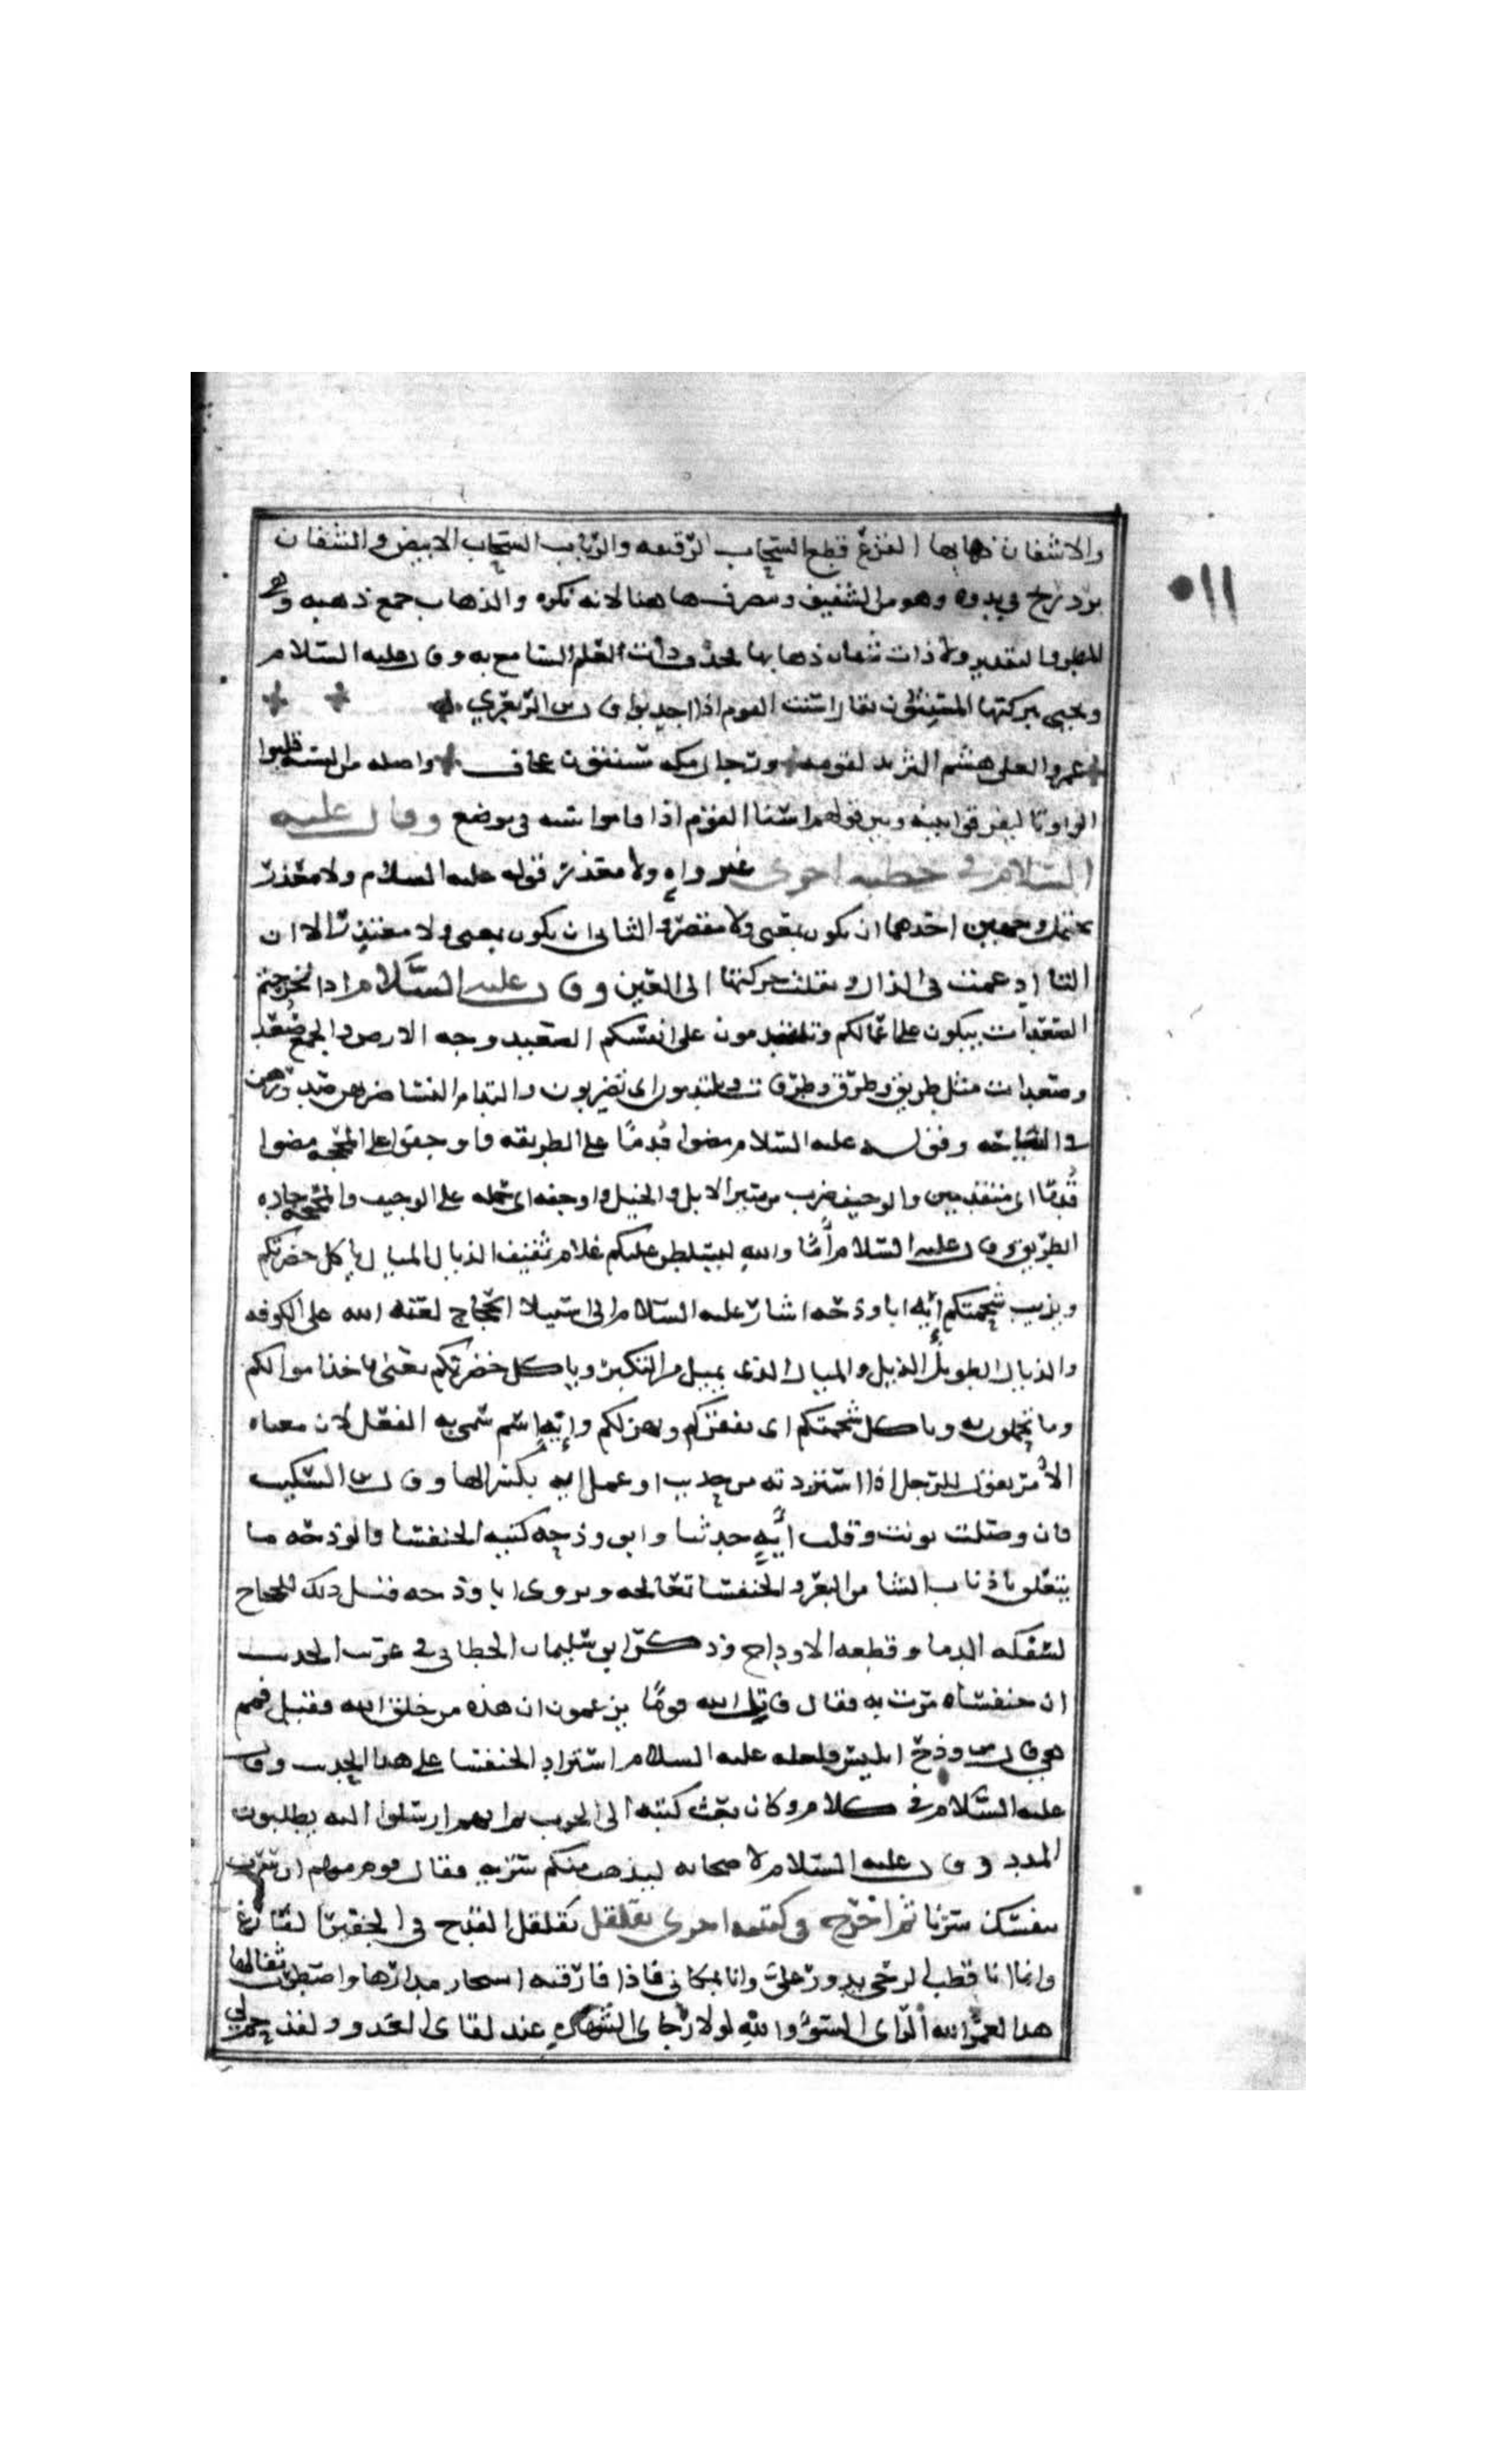 ١١٠
ولا شفان ذهابها القزع قطع السحاب الرقيقه والرباب السحاب الابيض والشفان
برد ريح في بدوه وهو من الشفيف وصرفه هاهنا لانه نكره والذهاب جمع ذهبه وهي
المطر والتقدير ولا ذات شفان ذهابها فحذف ذات لعلم السامع به وقال عليه السلام
ويحيى ببركتها المسنتون يقال اسنت القوم اذا اجدبوا قال ابن الزبعري
عمرو العلى هشم الثريد لقومه ورجال مكه مسنتون عجاف واصله من السنه قلبوا
الواو تا ليفرقوا بينه وبين قولهم اسنا القوم اذا قاموا سنه في موضع وقال عليه
السلام في خطبه اخرى غير واه ولا معذر قوله عليه السلام ولا معذر
يحتمل وجهين احدهما ان يكون بمعنى ولا مقصر والثاني ان يكون بمعنى ولا معتذر الا ان
التا ادغمت في الذال ونقلت حركتها الى العين وقال عليه السلام اذا لخرجتم
الصعدات تبكون على اعمالكم وتلتدمون على انفسكم الصعيد وجه الارض والجمع صعد
وصعدات مثل طريق وطرق وطرقات وتلتدمون اي تضربون والتدام النسا ضربهن صدورهن
في النياحه وقوله عليه السلام مضوا قدما على الطريقه واوجفوا على المحجه مضوا
قدما اي متقدمين والوجيف ضرب من سير الابل والخيل واوجفه اي حمله على الوجيف والمحجه جاده
الطريق وقال عليه السلام أما والله ليسلطن عليكم غلام ثقيف الذيال الميال ياكل خضرتكم
ويذيب شحمتكم ايه ابا وذحه اشار عليه السلام الى استيلا الحجاج لعنه الله على الكوفه
والذيال الطويل الذيل والميال الذي يميل من التكبر وياكل خضرتكم يعني ياخذ اموالكم
وما تجملون به وياكل شحمتكم اى يفقركم ويهزلكم وايه اسم سمي به الفعل لان معناه
الأمر يقول للرجل اذا استزدته من حديث او عمل ايه بكسر الها وقال ابن السكيت
فان وصلت نونت وقلت ايه حدثنا وابو وذحه كنيه الخنفسا والوذحه ما
يتعلق باذناب الشا من البعر والخنفسا تعالجه ويروى ابا ودجه فنسل ذلك للحجاج
لسفكه الدما وقطعه الاوداج وذكر ابو سليمان الخطابي في غريب الحديث
ان خنفساه مرت به فقال قاتل الله قوما يزعمون ان هذه من خلق الله فقيل فمم
هي قال من وذح ابليس ولعله عليه السلام استزاد الخنفسا على هذا الحديث وقال
عليه السلام في كلام وكان بعث كتيبه الى الحرب ارسلوا اليه يطلبون
المدد وقال عليه السلام لاصحابه ليذهب منكم سريه فقال قوم منهم ان سرت
بنفسك سرنا ثم اخرج في كتيبه اخرى تقلقل تقلقل القدح في الجفير الفارغ
وانما انا قطب الرحى يدور علي وانا بمكاني فاذا فارقته استحار مدارها واضطرب ثفالها
هذا لعمر الله الراى السوء والله لولا رجاى الشهاده عند لقاى العدو ولقد حم لي